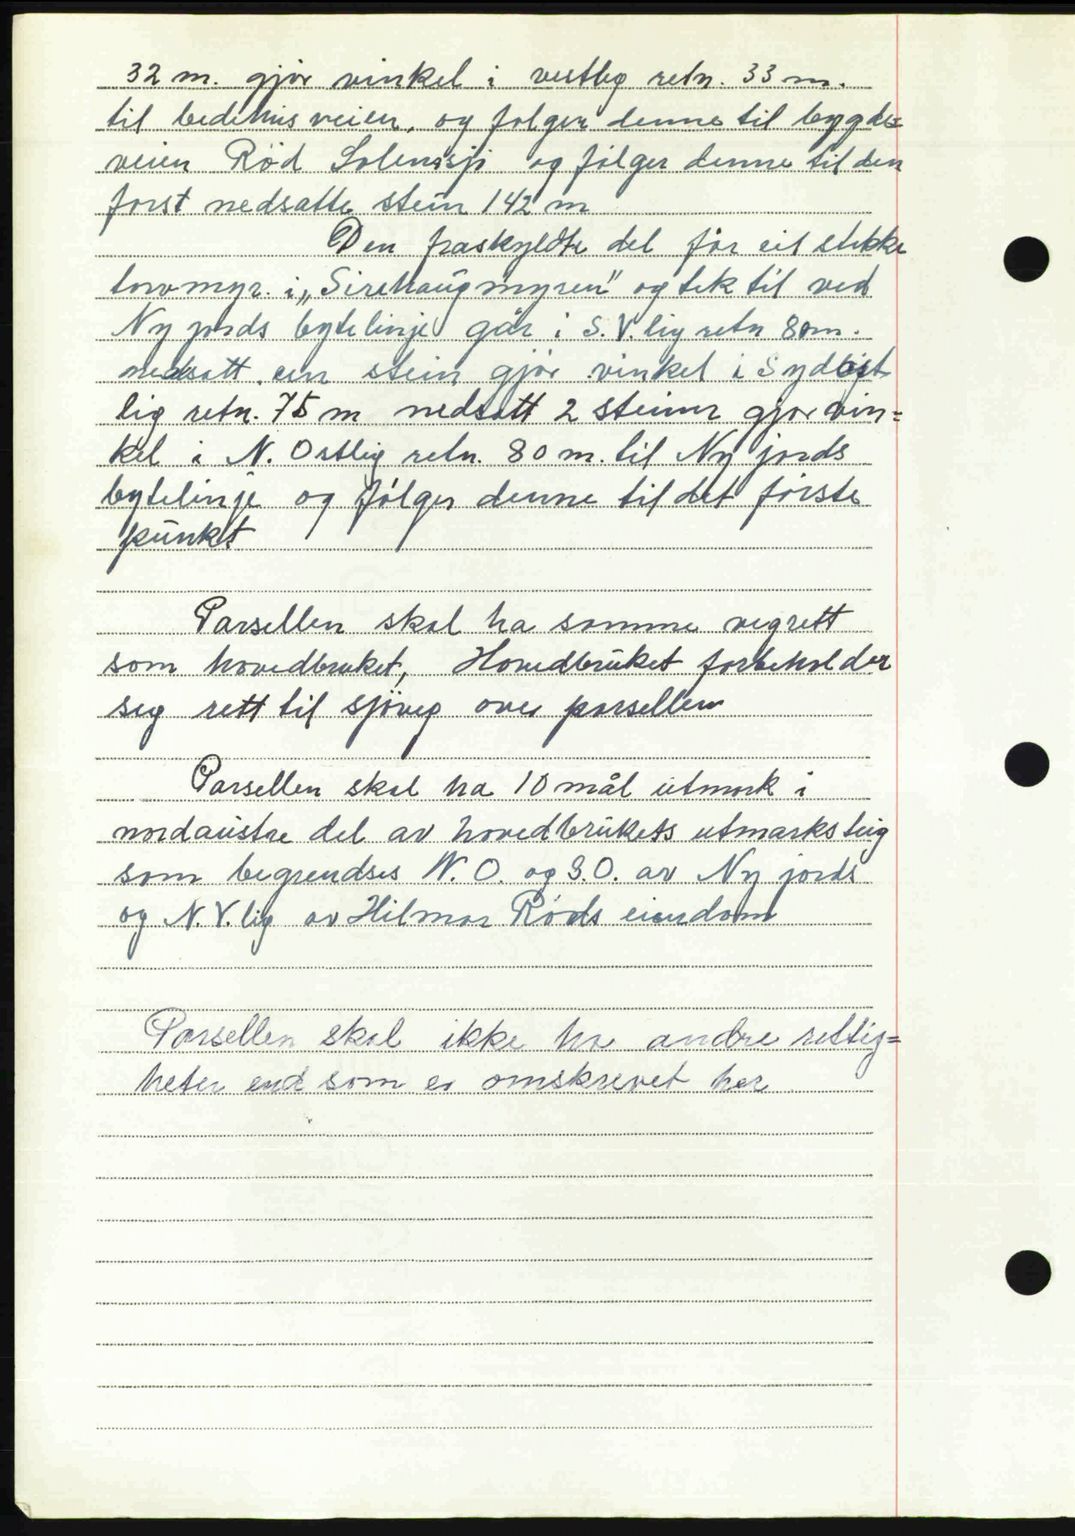 32 m. gjør vinkel i vestleg retn. 33 m.
til bedehusveien, og følger denne til bygde=
veien Rød Solemsjö og følger denne til den
först nedsatte stein 142 m
Den fraskyldte del får eit stikke
torvmyr. i „Sirehaugmyren" og tek til ved
Nyjords bytelinje går i S.V.lig retn 80m.
nedsatt en stein gjör vinkel i Sydöst
lig retn. 75 m nedsatt 2 steiner gjör vin=
kel i N. Ostlig retn. 80 m. til Ny jords
bytelinje og følger denne til det förste
punkt
Parsellen skal ha samme vegrett
som hovedbruket, Hovedbruket forbeholder
seg rett til sjöveg over parsellen
Parsellen skal ha 10 mål utmark i
nordaustre del av hovedbrukets utmarksteig
som begrendses N.O. og S.O. av Ny jords
og N.V.lig av Hilmar Røds eiendom
Parsellen skal ikke ha andre rettig=
heter end som er omskrevet her